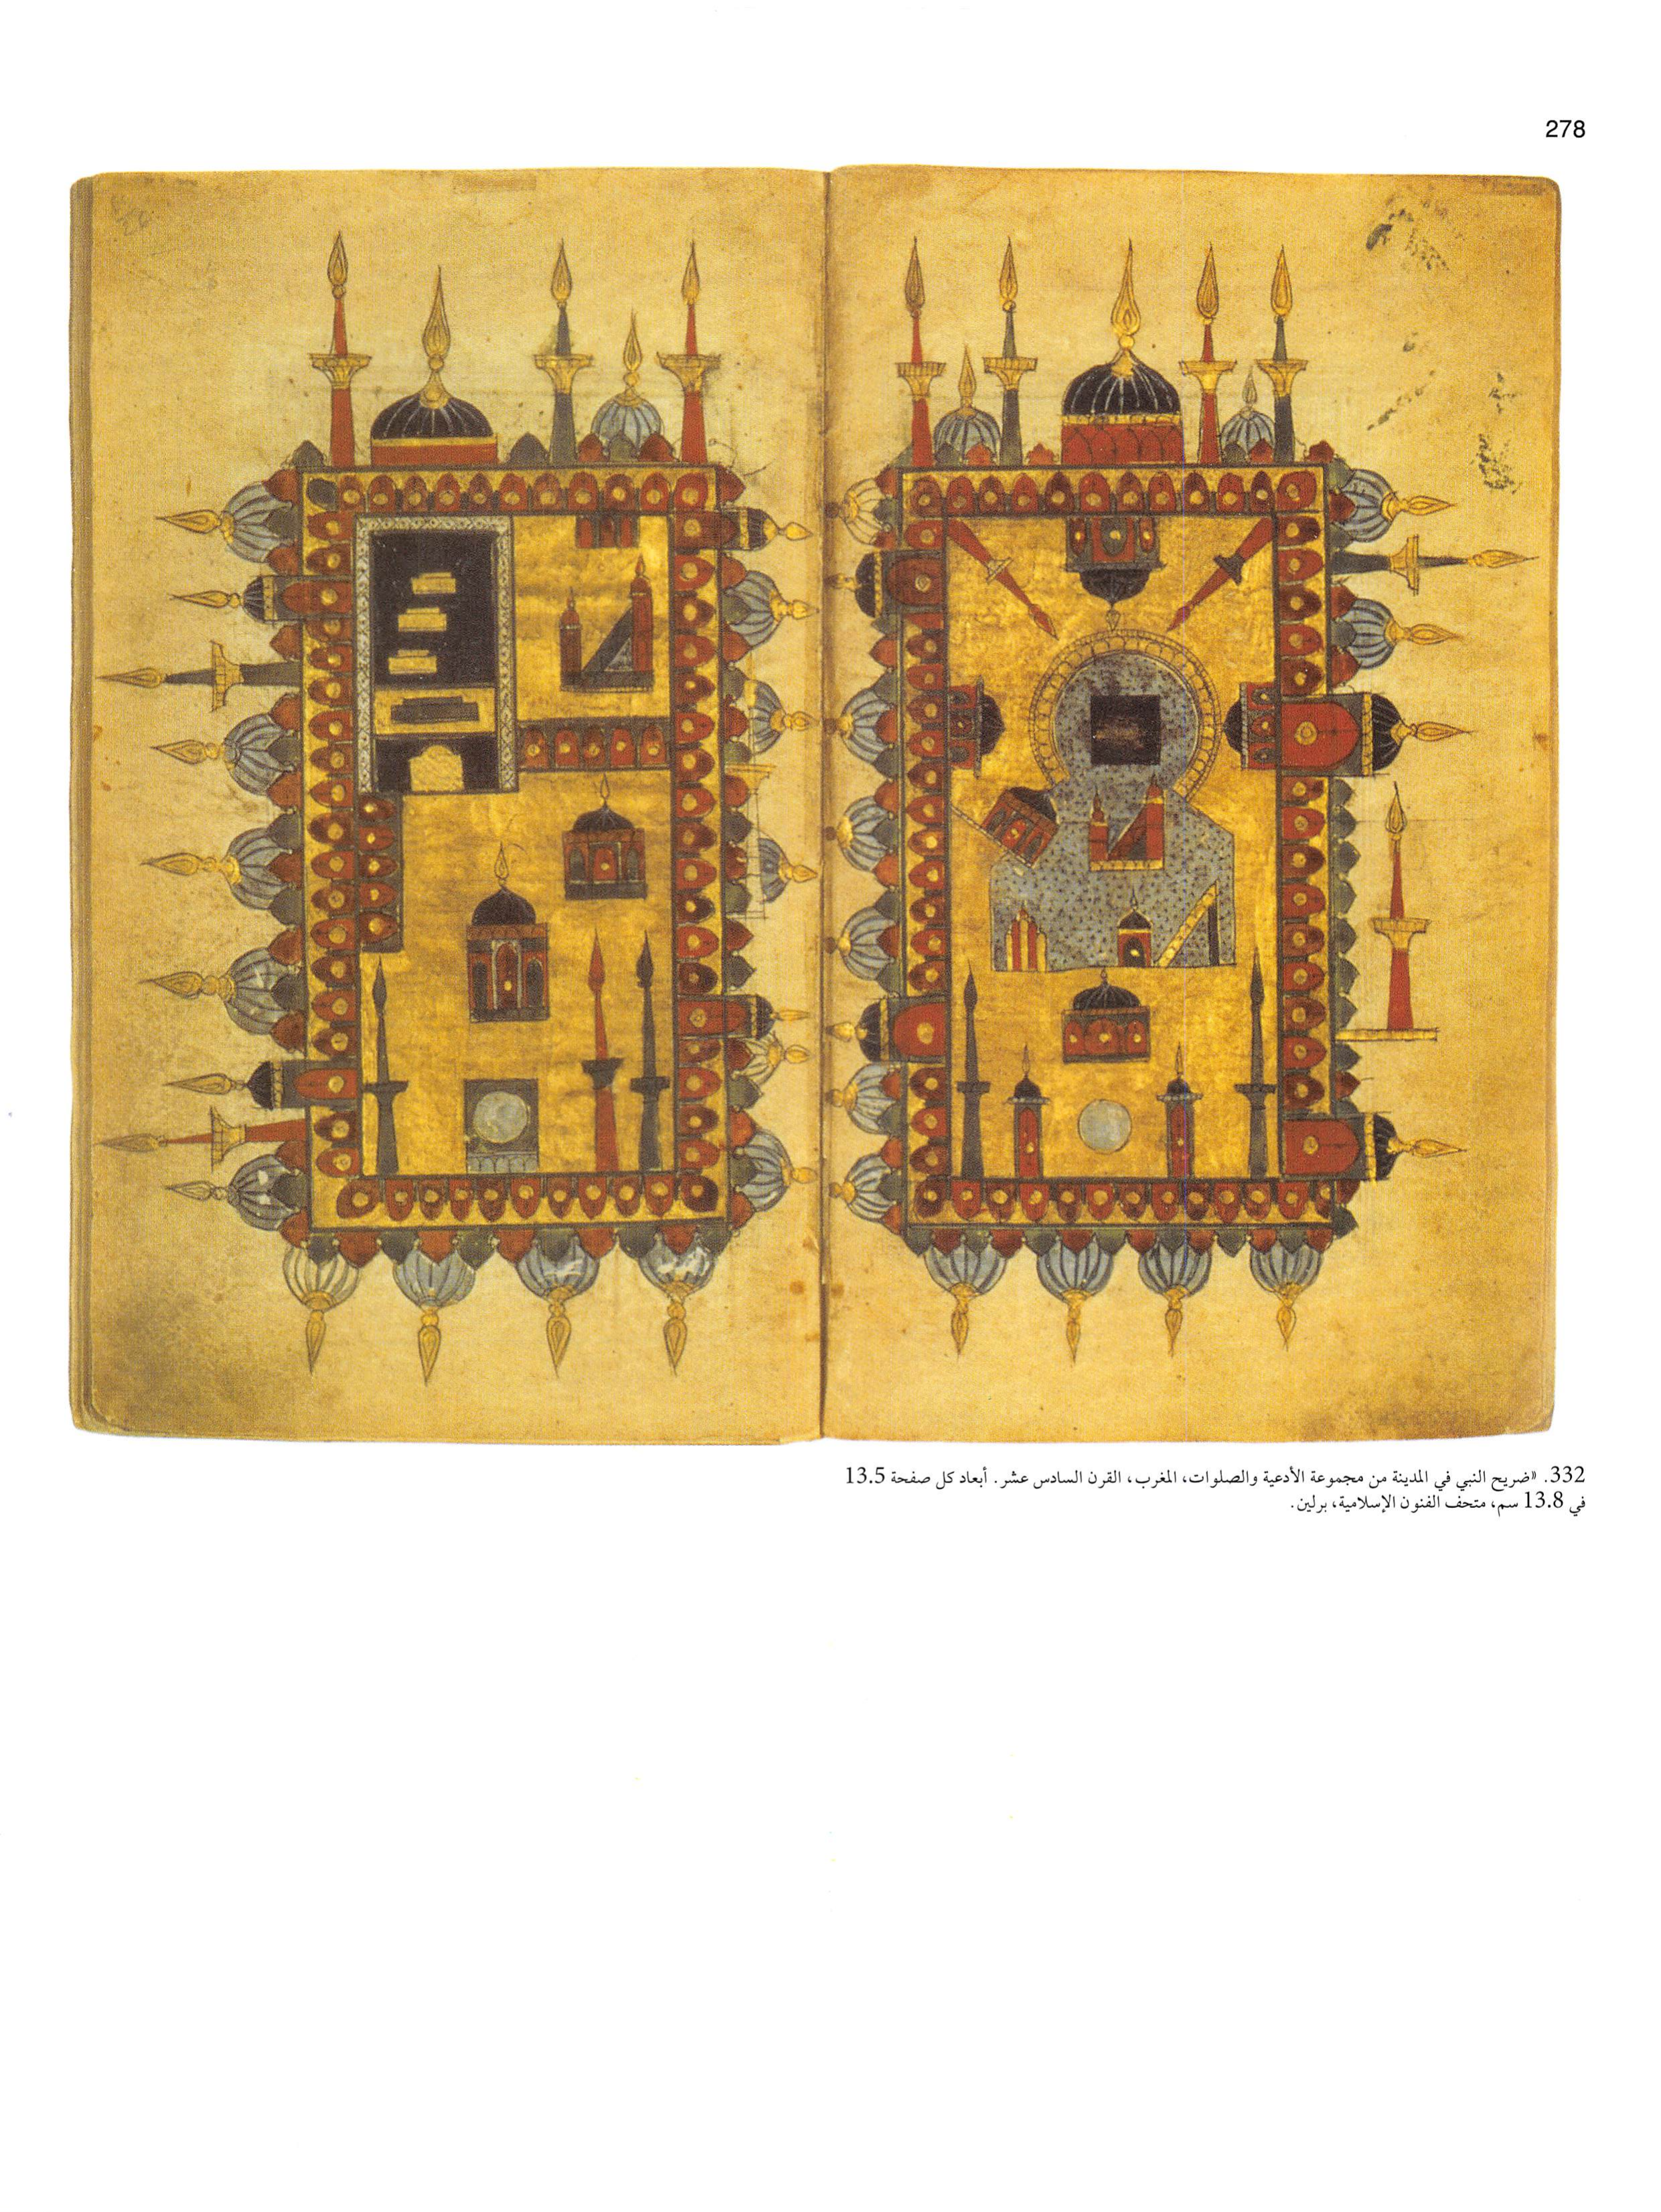 278
332. «ضريح النبي في المدينة من مجموعة الأدعية والصلوات، المغرب، القرن السادس عشر. أبعاد كل صفحة 13.5
في 13.8 سم، متحف الفنون الإسلامية، برلين.